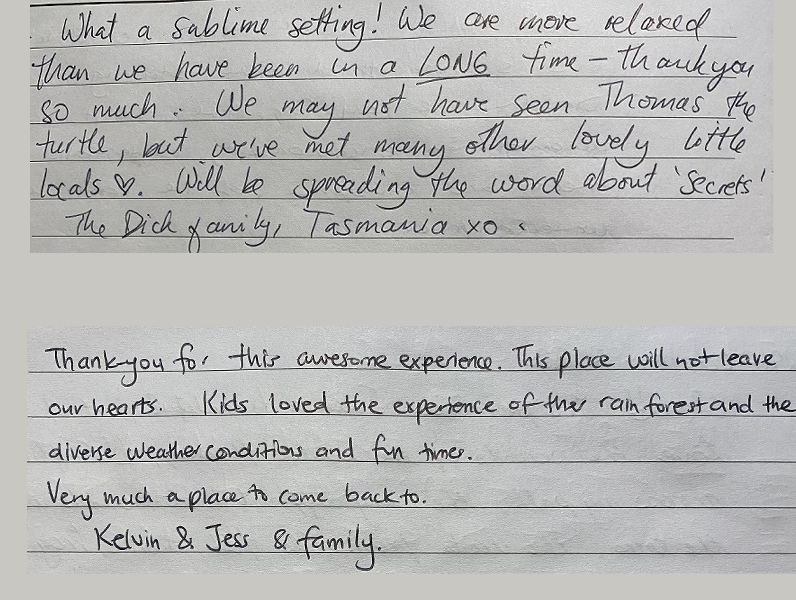 What a sublime setting! We are more relaxed
than we have been in a LONG time – thank you
so much. We may not have seen Thomas the
turtle, but we've met many other lovely little
locals ♡. Will be spreading the word about 'Secrets'
The Dick family, Tasmania xo
Thank you for this awesome experience. This place will not leave
our hearts. Kids loved the experience of the rain forest and the
diverse weather conditions and fun times.
Very much a place to come back to.
Kelvin & Jess & family.